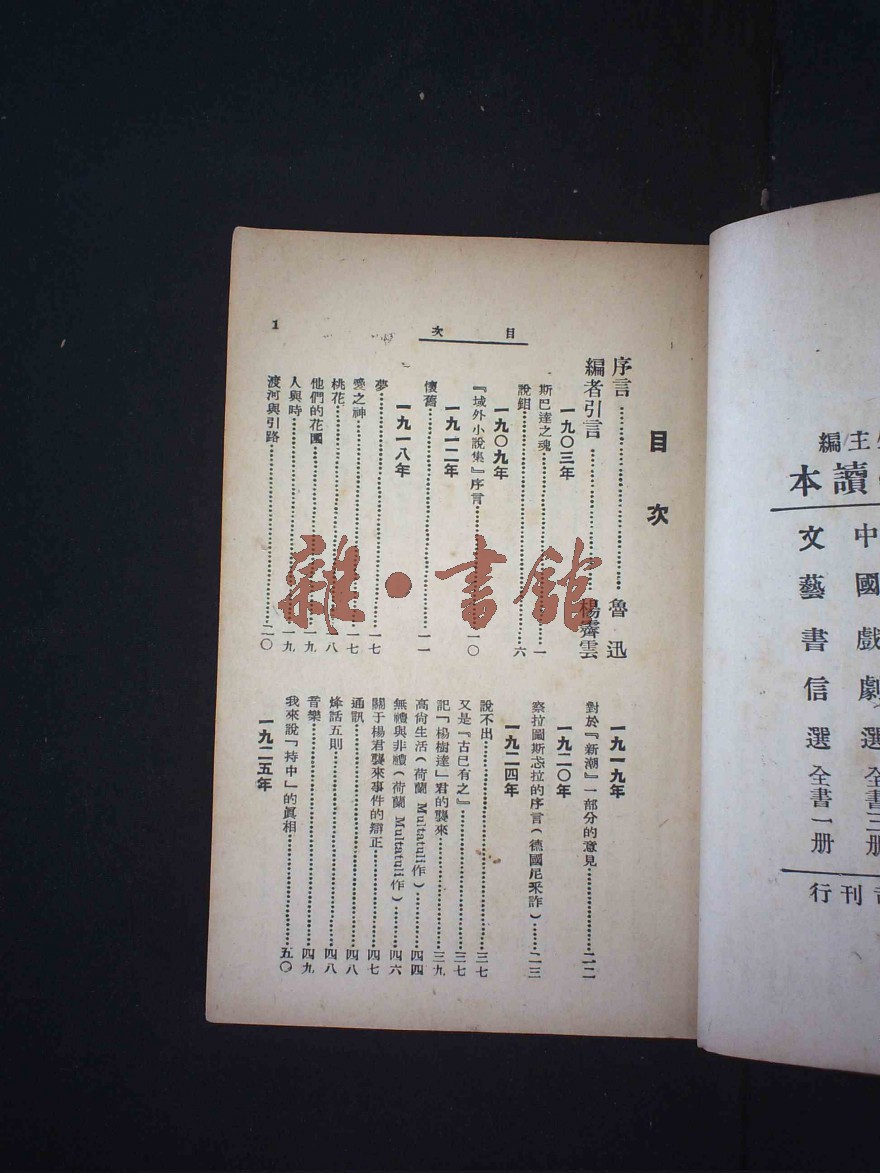 編/主
本讀
中國戲劇選 全書三册
文藝書信選 全書一册
行刊
目次
1
目次
序言……魯迅
編者引言……楊霽雲
一九〇三年
斯巴達之魂……一
說鈤……六
一九〇九年
『域外小說集』序言……一〇
一九一二年
懷舊……一一
一九一八年
夢……一七
愛之神……一七
桃花……一八
他們的花園……一九
人與時……一九
渡河與引路……二〇
一九一九年
對於『新潮』一部分的意見……二二
一九二〇年
察拉圖斯忒拉的序言(德國尼采詐)……二三
一九二四年
說不出……三七
又是『古已有之』……三七
記『楊樹達』君的襲來……三九
高尙生活(荷蘭 Multatuli作)……四四
無禮與非禮(荷蘭 Multatuli作)……四六
關于楊君襲來事件的辯正……四七
通訊……四八
烽話五則……四八
音樂……四九
我來說『持中』的眞相……五〇
一九二五年
雜·書館